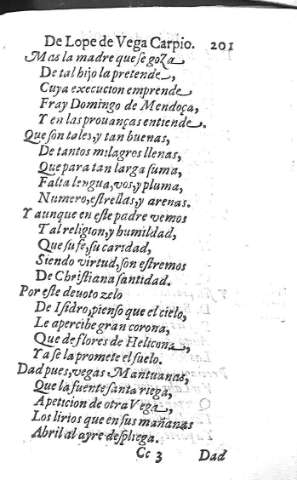 De Lope de Vega Carpio. 201
Mas la madre que se goza
De tal hijo la pretende,
Cuya execucion emprende
Fray Domingo de Mendoça,
Y en las prouanças entiende.
Que son tales, y tan buenas,
De tantos milagros llenas,
Que para tan larga suma,
Falta lengua, vos, y pluma,
Numero, estrellas, y arenas.
Y aunque en este padre vemos
Tal religion, y humildad,
Que su fè, su caridad,
Siendo virtud, son estremos
De Christiana santidad.
Por este deuoto zelo
De Isidro, pienso que el cielo,
Le apercibe gran corona,
Que de flores de Helicona,
Ya se la promete el suelo.
Dad pues, vegas Mantuanas,
Que la fuente santa riega,
A peticion de otra Vega,
Los lirios que en sus mañanas
Abril al ayre despliega.
Cc 3 Dad